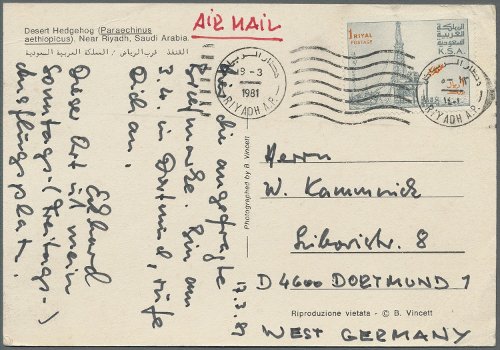 Desert Hedgehog (Paraechinus
aethiopicus). Near Riyadh, Saudi Arabia.
القنفذ قرب الرياض / المملكة العربية السعودية
AIR MAIL
1 RIYAL
POSTAGE
المملكة
العربية
السعودية
K.S.A.
9-3
1981
RIYADH A.P.
RIYADH A.P.
17.3.81
Hier die angefragte
Briefmarke. Bin am
3.4. in Dortmund, rufe
Dich an.
Eckhard
Dieser Ort ist mein
Sonntags-(Freitags-)
ausflugsplatz.
Photographed by B. Vincett
Herrn
W. Kammnick
Liboristr. 8
D 4600 DORTMUND 1
WEST GERMANY
Riproduzione vietata - © B. Vincett